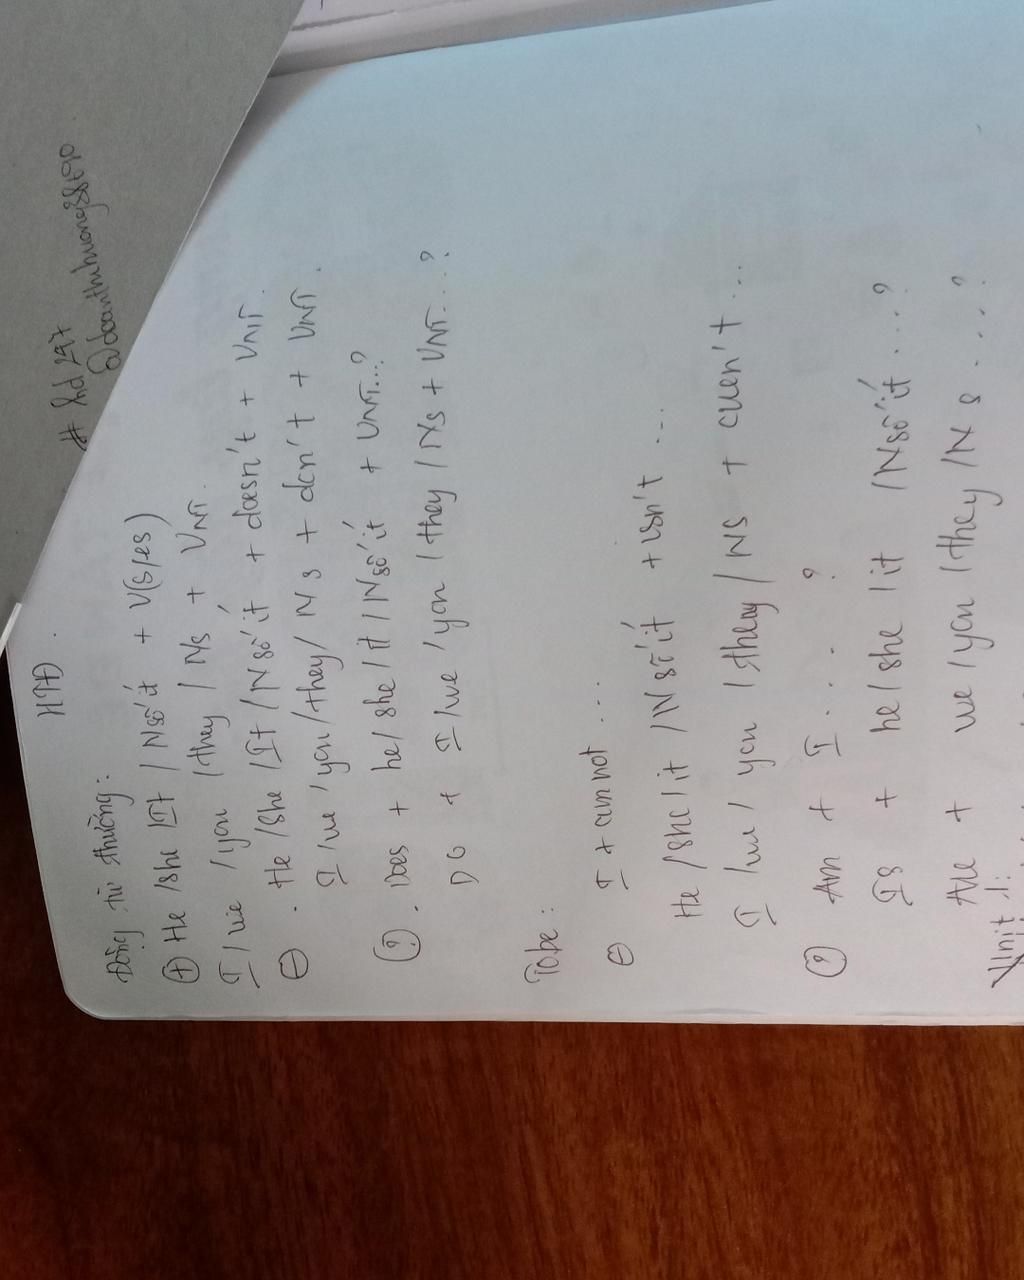 # hd 297
@doanthihuong88690
HTĐ.
Động từ thường:
(+) He /she /It / N số ít + V(s/es)
I / we / you / they / Ns + VNT.
(-) . He /She /It / N số ít + doesn't + VNT.
I / we / you / they / Ns + don't + VNT.
(?) . Does + he / she / it / N số ít + VNT...?
DO + I / we / you / they / Ns + VNT...?
Tobe:
(-) I + am not ....
He / she / it / N số ít + isn't ...
I / we / you / they / Ns + aren't ...
(?) Am + I .... ?
Is + he / she / it / N số ít ... ?
Are + we / you / they / Ns .... ?
Unit 1: